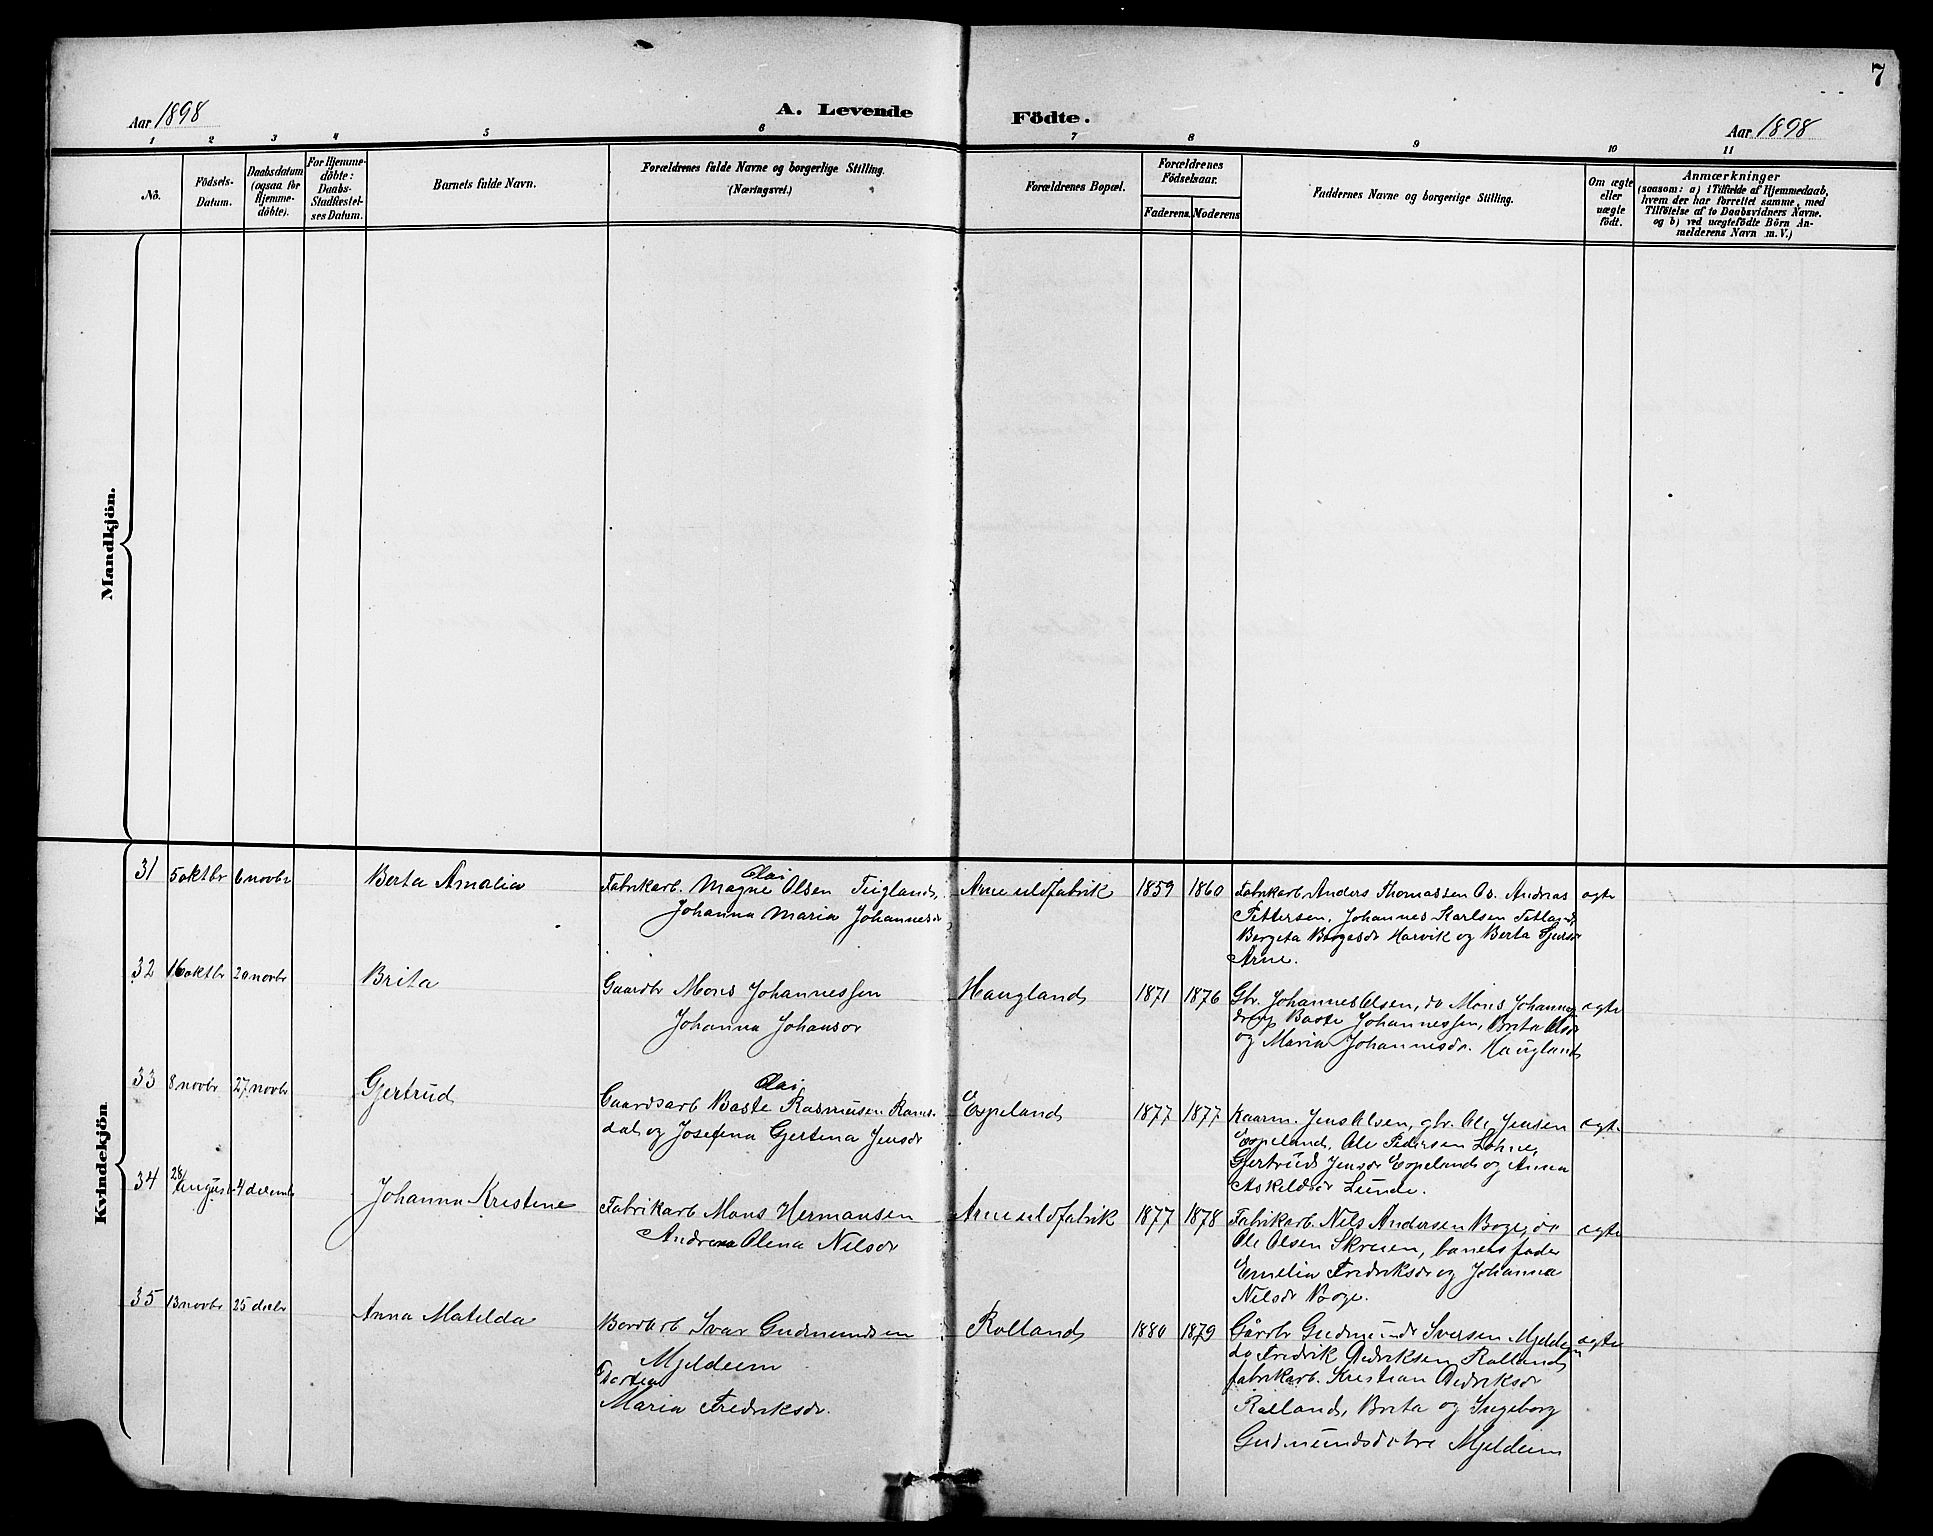 7
Aar 1898
A. Levende Födte.
Aar 1898
1 2 3 4 5 6 7 8 9 10 11
No.
Födsels-
Datum.
Daabsdatum
(ogsaa for
Hjemme-
döbte).
For Hjemme-
döbte:
Daabs-
Stadfæstel-
ses Datum.
Barnets fulde Navn.
Forældrenes fulde Navne og borgerlige Stilling.
(Næringsvei.)
Forældrenes Bopæl.
Forældrenes
Födselsaar.
Faderens. Moderens
Faddernes Navne og borgerlige Stilling.
Om ægte
eller
uægte
födt.
Anmærkninger
(saasom: a) i Tilfælde af Hjemmedaab,
hvem der har forrettet samme, med
Tilföielse af to Daabsvidners Navne.
og b) ved uægtefödte Börn An-
melderens Navn m. V.)
Mandkjön.
Kvindekjön
31 5 oktbr 6 novbr
Berta Amalia
Olai
Fabrikarb. Magne Olsen
Johanna Maria Johannesdr
Arne uldfabrik 1859 1860
Fabrikarb Anders Thomassen Os. Andreas
Pettersen, Johannes Karlsen
Bergeta Borgesdr Harvik og Berta
Arne.
ægte
32 16 oktbr 20 novbr
Brita
Gaardbr Mons Johannessen
Johanna Johansdr
Haugland 1871 1876
Gbr. Johannes Olsen, do Mons Johannes
dreng Baste Johannessen, Brita Olsdr
og Maria Johannesdr. Haugland
ægte
33 8 novbr 27 novbr
Gjertrud
Olai
Gaardsarb Baste Rasmusen Rams-
dal og Josefina Gjertina Jensdr
Espeland 1877 1877
Kaarm. Jens Olsen, gbr. Ole Jensen
Espeland, Ole Pedersen Lohne,
Gjertrud Jensdr Espeland og Anna
Askeldsdr Lunde.
ægte
34 28/ August 4 decemb
Johanna Kristine
Fabrikarb Mons Hermansen
Andrea Olena Nilsdr
Arne uldfabrik 1877 1878
Fabrikarb. Nils Andersen Boge, do
Ole Olsen Skreien, banets fader
Emelia Fredriksdr og Johanna
Nilsdr Boge.
ægte
35 13 novbr 25 decbr
Anna Matilda
Bordarb Ivar Gudmundsen
Mjeldeim
Dortea
Maria Fredriksdr.
Rolland 1880 1879
Gårdbr Gudmund Iversen Mjeldeim
do Fredrik Didriksen Rolland
fabrikarb. Kristian Didriksdr
Rolland, Brita og Ingeborg
Gudmundsdotre Mjeldeim
ægte